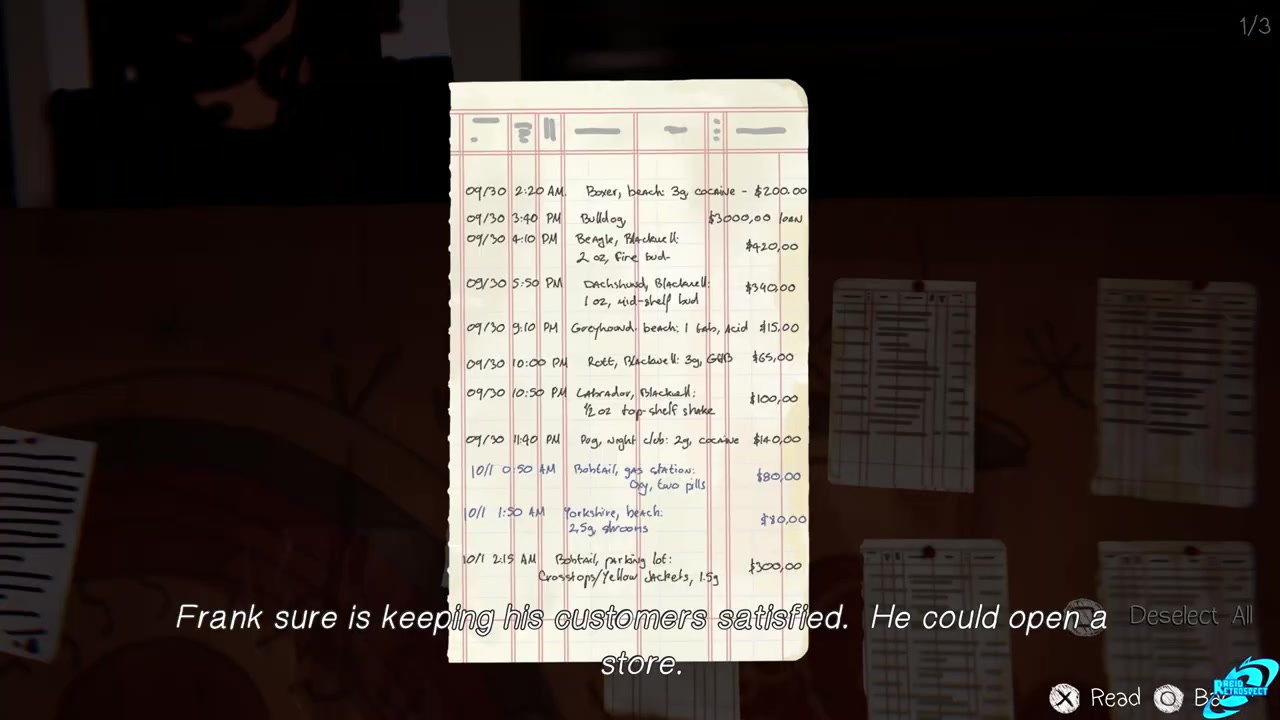 1/3
09/30 2:20 AM. Boxer, beach: 3g, cocaine - $200.00
09/30 3:40 PM Bulldog, $3000,00 loan
09/30 4:10 PM Beagle, Blackwell: $420,00
2 oz, fire bud-
09/30 5:50 PM Dachshund, Blackwell: $340,00
1 oz, mid-shelf bud
09/30 9:10 PM Greyhound, beach: 1 tab, Acid $15.00
09/30 10:00 PM Rott, Blackwell: 3g, GHB $65,00
09/30 10:50 PM Labrador, Blackwell: $100,00
1/2 oz top-shelf shake
09/30 11:40 PM Pug, night club: 2g, cocaine $140,00
10/1 0:50 AM Bobtail, gas station: $80,00
Oxy, two pills
10/1 1:50 AM Yorkshire, beach:
2,5g, shrooms
10/1 2:15 AM Bobtail, parking lot: $300,00
Crosstops/Yellow Jackets, 1.5g
Frank sure is keeping his customers satisfied. He could open a
store.
Deselect All
Read
RAGID
RETROSPECT